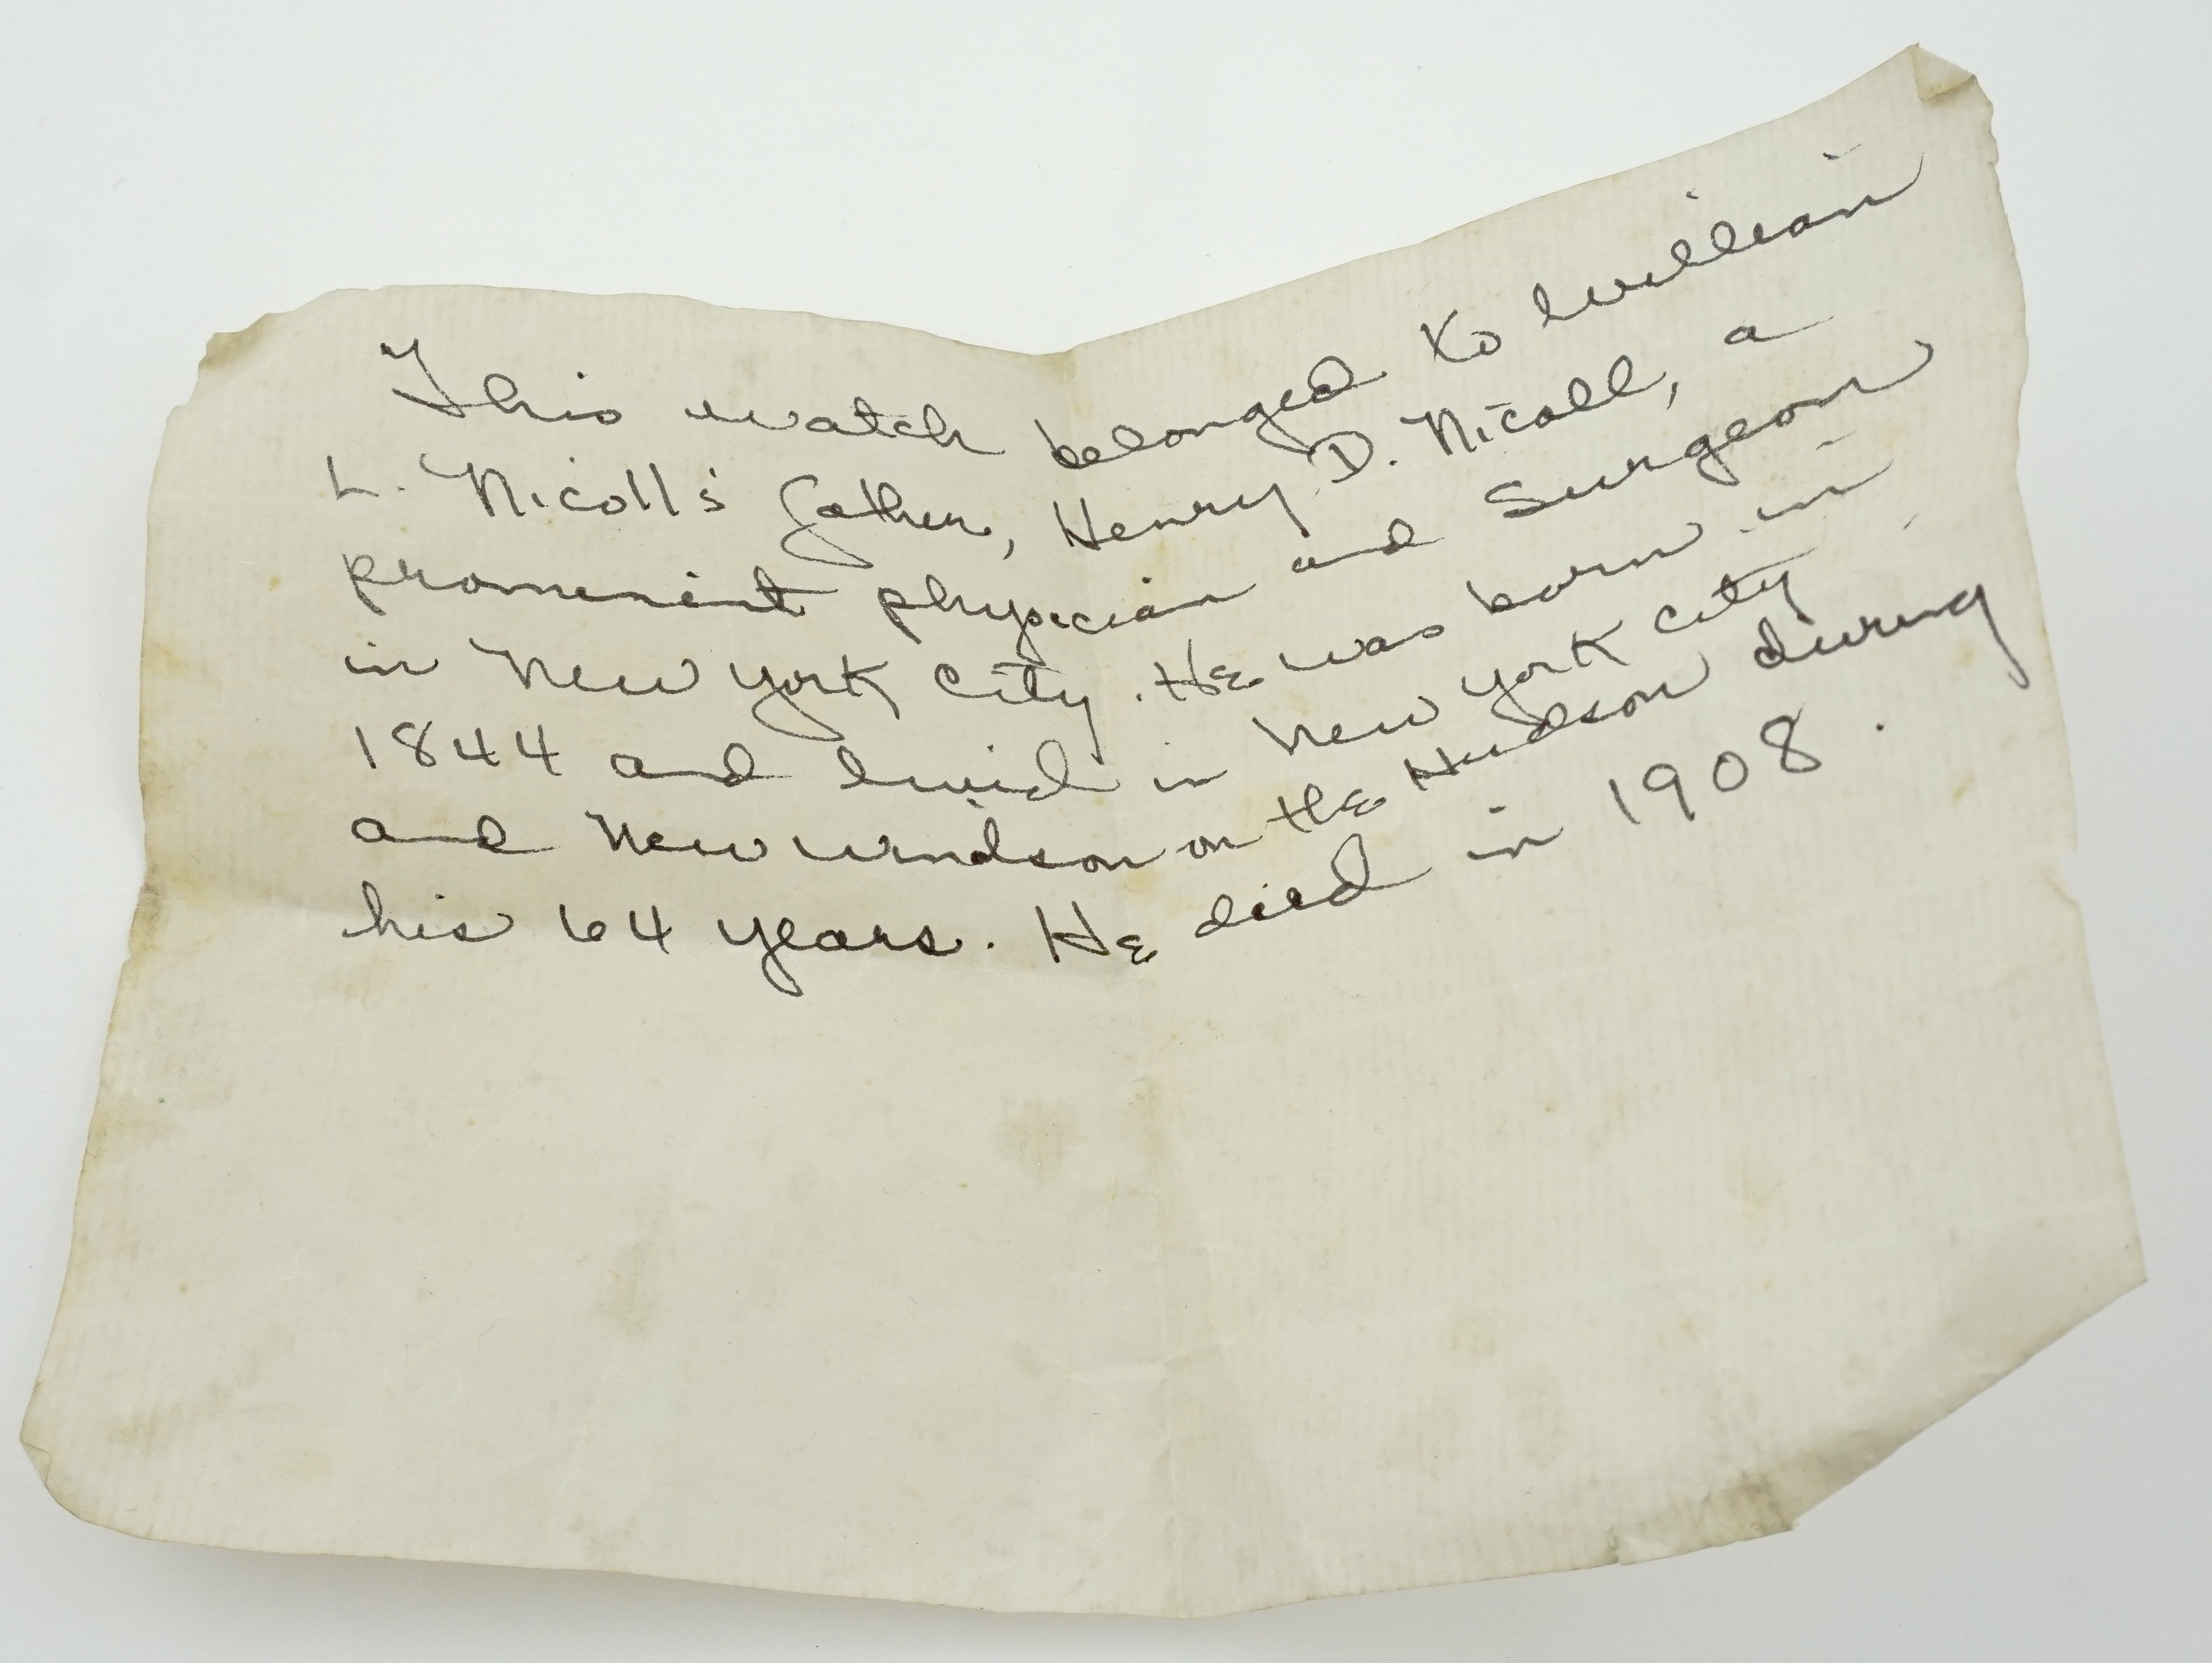 This watch belonged to William
L. Nicoll's father, Henry D. Nicoll, a
prominent physician and Surgeon
in New York City. He was born in
1844 and lived in New York City
and New Windsor on the Hudson during
his 64 years. He died in 1908.